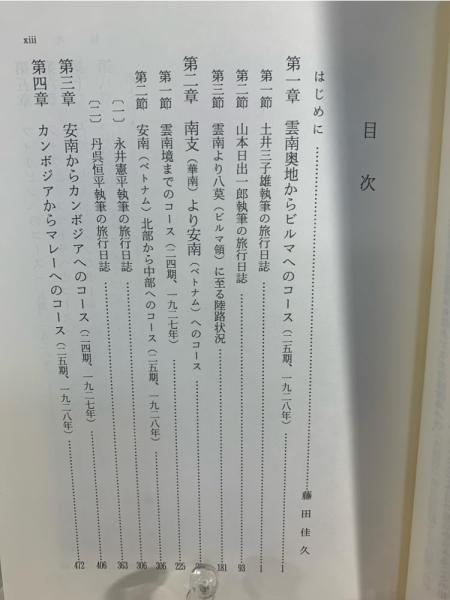 目次
はじめに……藤田佳久
第一章　雲南奥地からビルマへのコース（二五期、一九二八年）……1
第一節　土井三子雄執筆の旅行日誌……1
第二節　山本日出一郎執筆の旅行日誌……93
第三節　雲南より八莫（ビルマ領）に至る陸路状況……181
第二章　南支（華南）より安南（ベトナム）へのコース……
第一節　雲南境までのコース（二四期、一九二七年）……225
第二節　安南（ベトナム）北部から中部へのコース（二五期、一九二八年）……306
〔一〕　永井憲平執筆の旅行日誌……306
〔二〕　丹呉恒平執筆の旅行日誌……363
第三章　安南からカンボジアへのコース（二四期、一九二七年）……406
第四章　カンボジアからマレーへのコース（二五期、一九二八年）……472
xiii